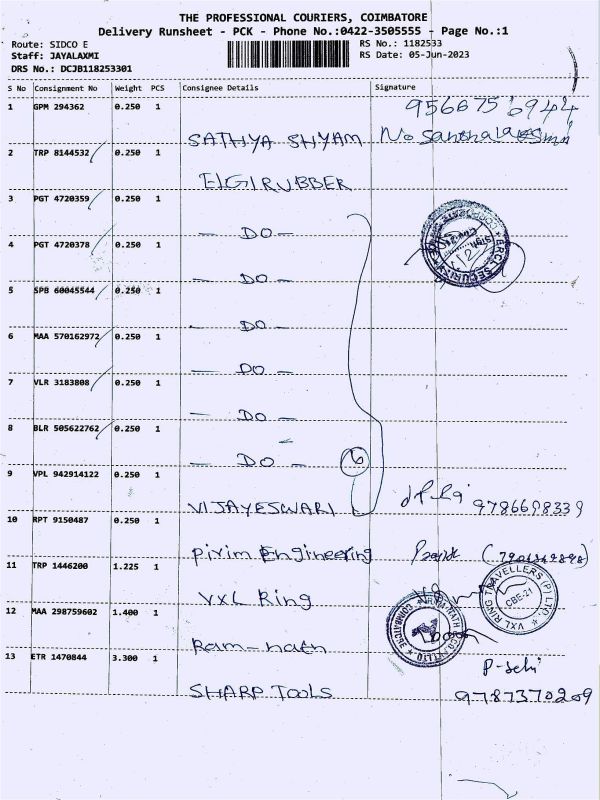 THE PROFESSIONAL COURIERS, COIMBATORE
Delivery Runsheet - PCK - Phone No.:0422-3505555 - Page No.:1
Route: SIDCO E
RS No.: 1182533
Staff: JAYALAXMI
RS Date: 05-Jun-2023
DRS No.: DCJB118253301
S No Consignment No Weight PCS Consignee Details Signature
1 GPM 294362 0.250 1 SATHYA SHYAM 9566756944
2 TRP 8144532 0.250 1 ELGI RUBBER
3 PGT 4720359 0.250 1 - DO -
4 PGT 4720378 0.250 1 - DO -
5 SPB 60045544 0.250 1 - DO -
6 MAA 570162972 0.250 1 - DO -
7 VLR 3183808 0.250 1 - DO -
8 BLR 505622762 0.250 1 - DO - 6
9 VPL 942914122 0.250 1 VIJAYESWARI 9786698339
10 RPT 9150487 0.250 1 Pirim Engineering
11 TRP 1446200 1.225 1 VXL Ring
VXL RING TRAVELLERS (P) LTD. CBE-21
12 MAA 298759602 1.400 1 Ram-nath
13 ETR 1470844 3.300 1 SHARP TOOLS 9787370209